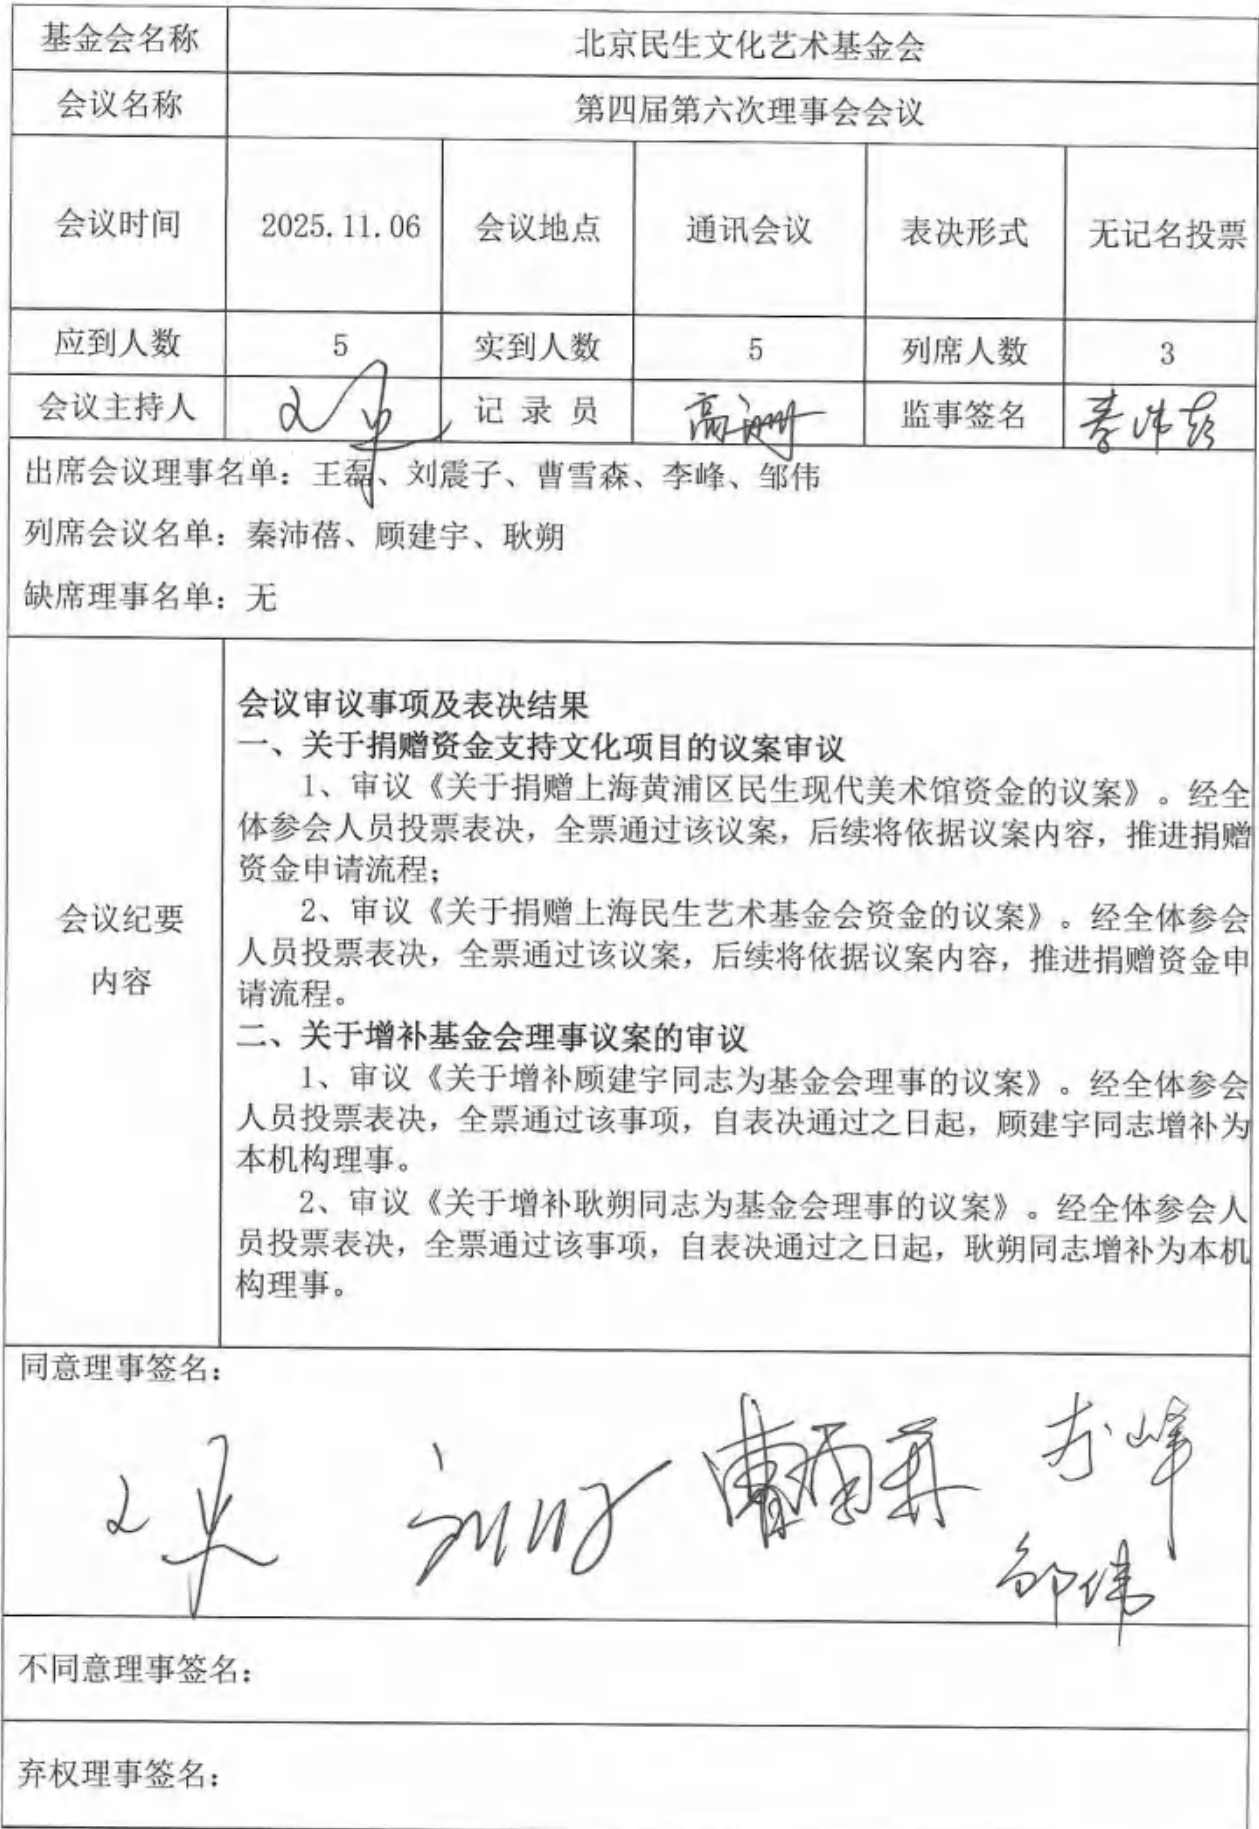 基金会名称 北京民生文化艺术基金会
会议名称 第四届第六次理事会会议
会议时间 2025.11.06 会议地点 通讯会议 表决形式 无记名投票
应到人数 5 实到人数 5 列席人数 3
会议主持人 记录员 高珊 监事签名 秦沛蓓
出席会议理事名单：王磊、刘震子、曹雪森、李峰、邹伟
列席会议名单：秦沛蓓、顾建宇、耿朔
缺席理事名单：无
会议纪要
内容
会议审议事项及表决结果
一、关于捐赠资金支持文化项目的议案审议
1、审议《关于捐赠上海黄浦区民生现代美术馆资金的议案》。经全
体参会人员投票表决，全票通过该议案，后续将依据议案内容，推进捐赠
资金申请流程；
2、审议《关于捐赠上海民生艺术基金会资金的议案》。经全体参会
人员投票表决，全票通过该议案，后续将依据议案内容，推进捐赠资金申
请流程。
二、关于增补基金会理事议案的审议
1、审议《关于增补顾建宇同志为基金会理事的议案》。经全体参会
人员投票表决，全票通过该事项，自表决通过之日起，顾建宇同志增补为
本机构理事。
2、审议《关于增补耿朔同志为基金会理事的议案》。经全体参会人
员投票表决，全票通过该事项，自表决通过之日起，耿朔同志增补为本机
构理事。
同意理事签名：
曹雪森 李峰
邹伟
不同意理事签名：
弃权理事签名：